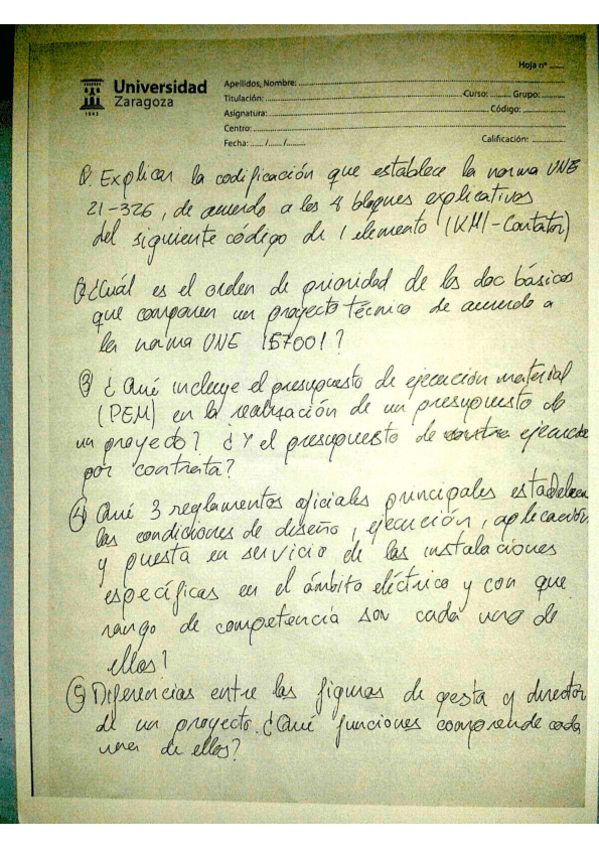 Hoja nº ......
Universidad
Zaragoza
1542
Apellidos, Nombre:
Titulación: Curso: Grupo:
Asignatura: Código:
Centro:
Fecha: ...... /...... /........ Calificación:
Explicar la codificación que establece la norma UNE
21-326, de acuerdo a los 4 bloques explicativos
del siguiente código de 1 elemento (KM1-Contator)
¿Cuál es el orden de prioridad de los doc básicos
que componen un proyecto técnico de acuerdo a
la norma UNE 157001?
③ ¿Qué incluye el presupuesto de ejecución material
(PEM) en la realización de un presupuesto de
un proyecto? ¿Y el presupuesto de ejecución
por contrata?
④ Qué 3 reglamentos oficiales principales establecen
las condiciones de diseño, ejecución, aplicación
y puesta en servicio de las instalaciones
específicas en el ámbito eléctrico y con que
rango de competencia son cada uno de
ellos?
⑤ Diferencias entre las figuras de gesta y director
de un proyecto. ¿Qué funciones comprende cada
una de ellos?